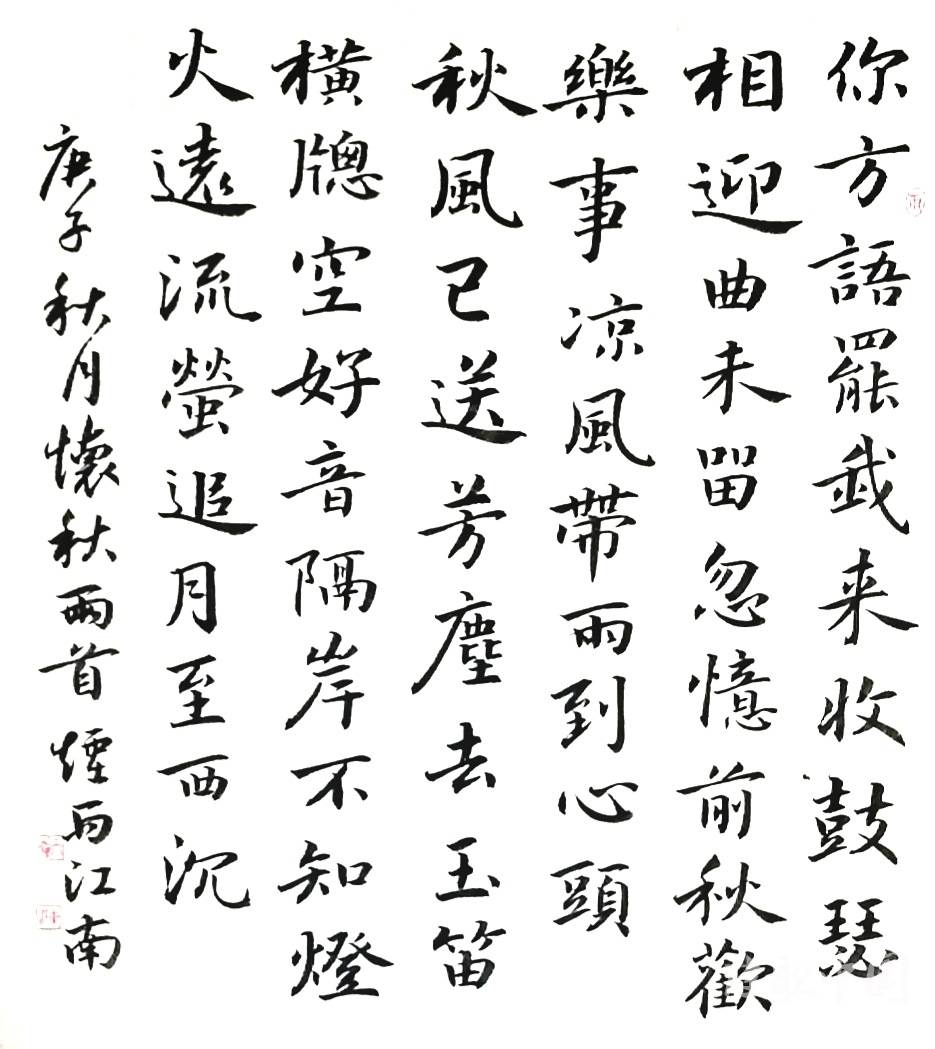 你方語罷我来收鼓瑟
相迎曲未留忽憶前秋歡
樂事凉風帶雨到心頭
秋風已送芳塵去玉笛
橫牕空好音隔岸不知燈
火遠流螢追月至西沉
庚子秋月懷秋兩首煙雨江南